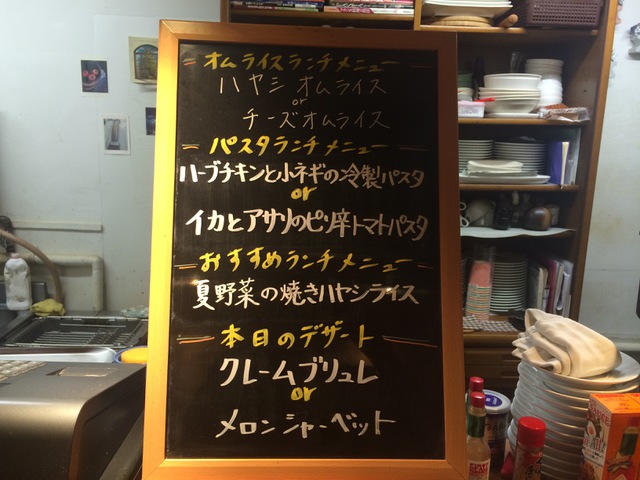 オムライスランチメニュー
ハヤシオムライス
or
チーズオムライス
パスタランチメニュー
ハーブチキンと小ネギの冷製パスタ
or
イカとアサリのピリ辛トマトパスタ
おすすめランチメニュー
夏野菜の焼きハヤシライス
本日のデザート
クレームブリュレ
or
メロンシャーベット